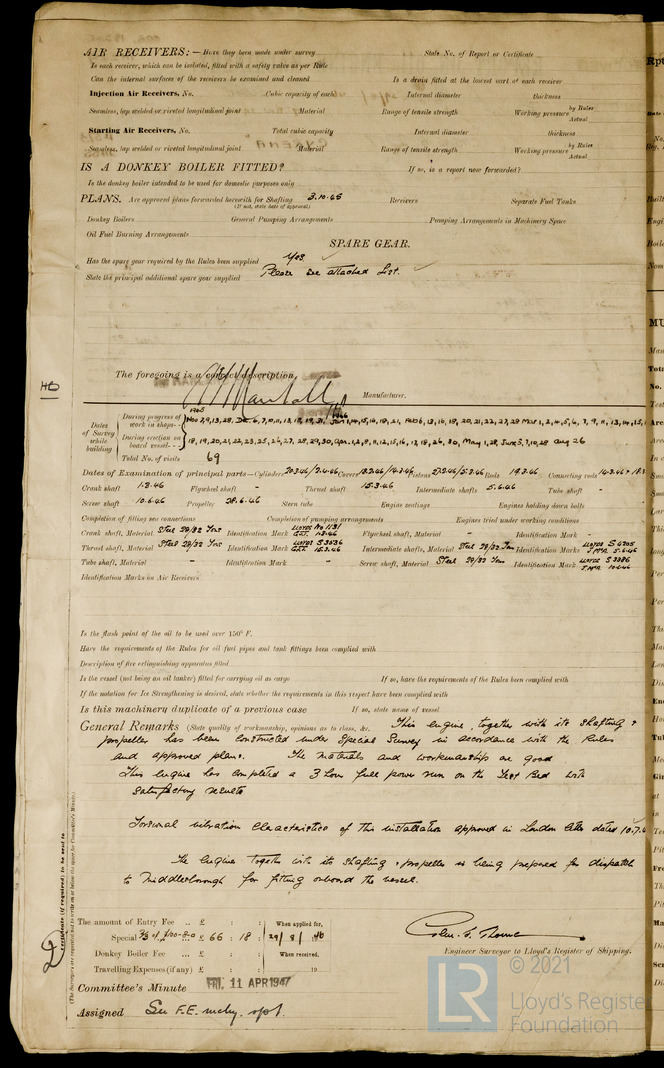 AIR RECEIVERS:— Have they been made under survey State No. of Report or Certificate
Is each receiver, which can be isolated, fitted with a safety valve as per Rule
Can the internal surfaces of the receivers be examined and cleaned Is a drain fitted at the lowest part of each receiver
Injection Air Receivers, No. Cubic capacity of each Internal diameter thickness
Seamless, lap welded or riveted longitudinal joint Material Range of tensile strength Working pressure by Rules Actual
Starting Air Receivers, No. Total cubic capacity Internal diameter thickness
Seamless, lap welded or riveted longitudinal joint Material Range of tensile strength Working pressure by Rules Actual
IS A DONKEY BOILER FITTED? If so, is a report now forwarded?
Is the donkey boiler intended to be used for domestic purposes only
PLANS. Are approved plans forwarded herewith for Shafting 3.10.45 Receivers Separate Fuel Tanks
(If not, state date of approval)
Donkey Boilers General Pumping Arrangements Pumping Arrangements in Machinery Space
Oil Fuel Burning Arrangements
SPARE GEAR.
Has the spare gear required by the Rules been supplied Yes
State the principal additional spare gear supplied Please see attached List.
The foregoing is a correct description,
Manufacturer.
Dates of Survey while building
During progress of work in shops - -
During erection on board vessel - - 18, 19, 20, 21, 22, 23, 25, 26, 27, 28, 29, 30, Apr. 1, 2, 8, 11, 12, 15, 16, 17, 18, 26, 30, May 1, 28, June 3, 7, 10, 28 Aug 26
Total No. of visits 69
Dates of Examination of principal parts—Cylinders Covers Pistons Rods 19.3.46 Connecting rods
Crank shaft 1.3.46 Flywheel shaft - Thrust shaft 15.3.46 Intermediate shafts 5.6.46 Tube shaft -
Screw shaft 10.6.46 Propeller 28.6.46 Stern tube Engine seatings Engines holding down bolts
Completion of fitting sea connections Completion of pumping arrangements Engines tried under working conditions
Crank shaft, Material Steel 28/32 Tons Identification Mark LLOYDS No 1131 1.3.46 Flywheel shaft, Material - Identification Mark
Thrust shaft, Material Steel 28/32 Tons Identification Mark LLOYDS 15.3.46 Intermediate shafts, Material Steel 28/32 Tons Identification Marks LLOYDS 5.6.46
Tube shaft, Material - Identification Mark - Screw shaft, Material Steel 28/32 Tons Identification Mark LLOYDS 10.6.46
Identification Marks on Air Receivers
Is the flash point of the oil to be used over 150° F.
Have the requirements of the Rules for oil fuel pipes and tank fittings been complied with
Description of fire extinguishing apparatus fitted
Is the vessel (not being an oil tanker) fitted for carrying oil as cargo If so, have the requirements of the Rules been complied with
If the notation for Ice Strengthening is desired, state whether the requirements in this respect have been complied with
Is this machinery duplicate of a previous case If so, state name of vessel
General Remarks (State quality of workmanship, opinions as to class, &c. This engine, together with its shafting &
propeller has been constructed under Special Survey in accordance with the Rules
and approved plans. The materials and workmanship are good
This Engine has completed a 3 hour full power run on the Test Bed with
satisfactory results
Torsional vibration characteristics of this installation approved in London letter dated 10.7.4
The Engine together with its shafting & propeller is being prepared for dispatch
to Middlesbrough for fitting onboard the vessel.
The amount of Entry Fee .. £ : : When applied for,
Special £ 66 : 18 : 29/8/46
Donkey Boiler Fee ... £ : : When received,
Travelling Expenses (if any) £ : : 19
Engineer Surveyor to Lloyd's Register of Shipping.
Committee's Minute FRI. 11 APR 1947
Assigned See F.E. mchy. rpt.
© 2021
Lloyd's Register
Foundation